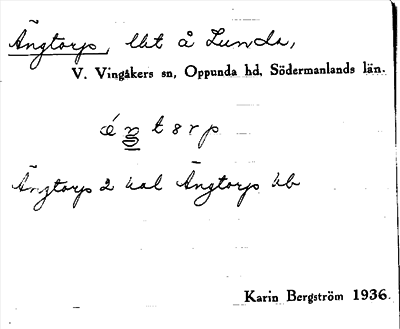 Ängtorp, lht å Lunda,
V. Vingåkers sn, Oppunda hd, Södermanlands län.
Ängtorp 2 hal Ängtorp hb
Karin Bergström 1936.